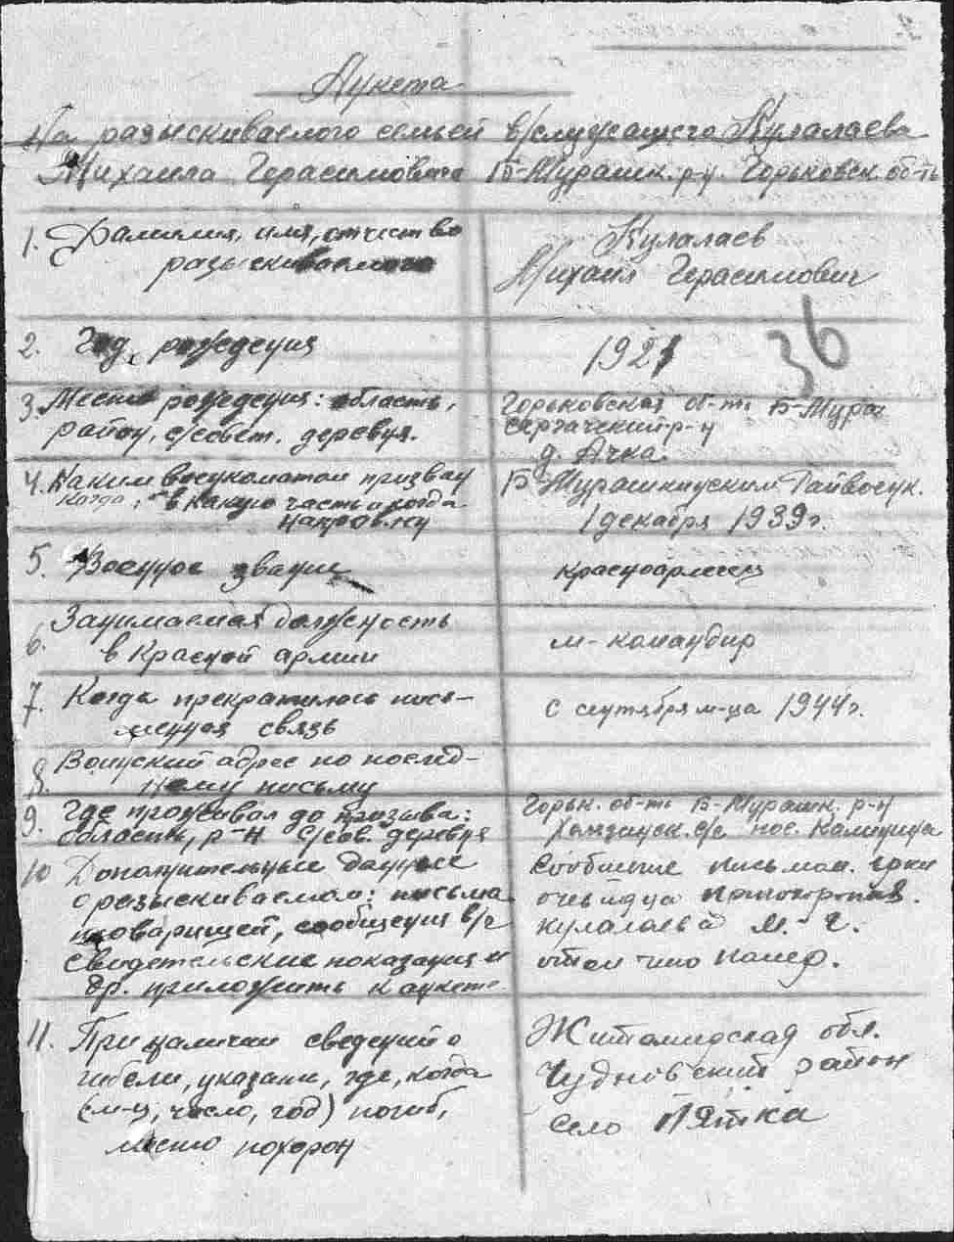 Анкета
На разыскиваемого семьей в/служащего Кулалаева
Михаила Герасимовича Б-Мурашк. р-н. Горьковск. об-ть
1. Фамилия, имя, отчество
разыскиваемого
Кулалаев
Михаил Герасимович
2. Год рождения
1921
36
3. Место рождения: область,
район, с/совет. деревня.
Горьковская об-ть Б-Мураш
Сергачский р-н
д. Ачка.
4. Каким военкоматом призван
когда, в какую часть и когда
направлен
Б Мурашкинским Райвоенк.
1 декабря 1939 г.
5. Военное звание
красноармеец
6. Занимаемая должность
в Красной армии
м-командир
7. Когда прекратилась пись-
менная связь
с сентября м-ца 1944 г.
8. Воинский адрес по послед-
нему письму
9. Где проживал до призыва:
область, р-н с/сов. деревня
Горьк. об-ть Б-Мурашк. р-н
с/с пос. Калинина
10 Дополнительные данные
о разыскиваемом: письма
товарищей, сообщения в/ч
свидетельские показания и
др. приложить к анкете
Сообщение письмом.
очевидца
Кулалаева М. Г.
о том что помер.
11. При наличии сведений о
гибели, указать, где, когда
(м-ц, число, год) погиб,
место похорон
Житомирская обл.
Чудновский район
село Пятка